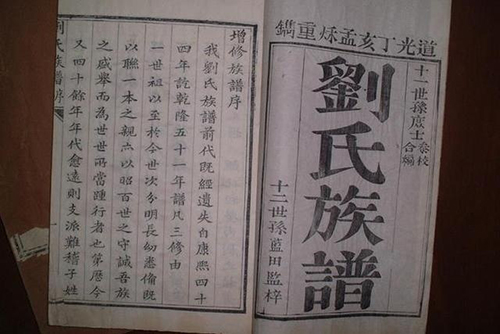 道光丁亥孟秌重鐫
十一世孫庻士泰校
合編
劉氏族譜
十二世孫藍田監梓
增修族譜序
我劉氏族譜前代既經遺失自康熙四十
四年訖乾隆五十一年譜凡三修由
一世祖以至於今世次分明長幼悉偹既
以聯一本之親点以昭百世之守誠吾族
之盛舉而為世世所當踵行者也第歷今
又四十餘年年代愈遠則支派難稽子姓
劉氏族譜序
一